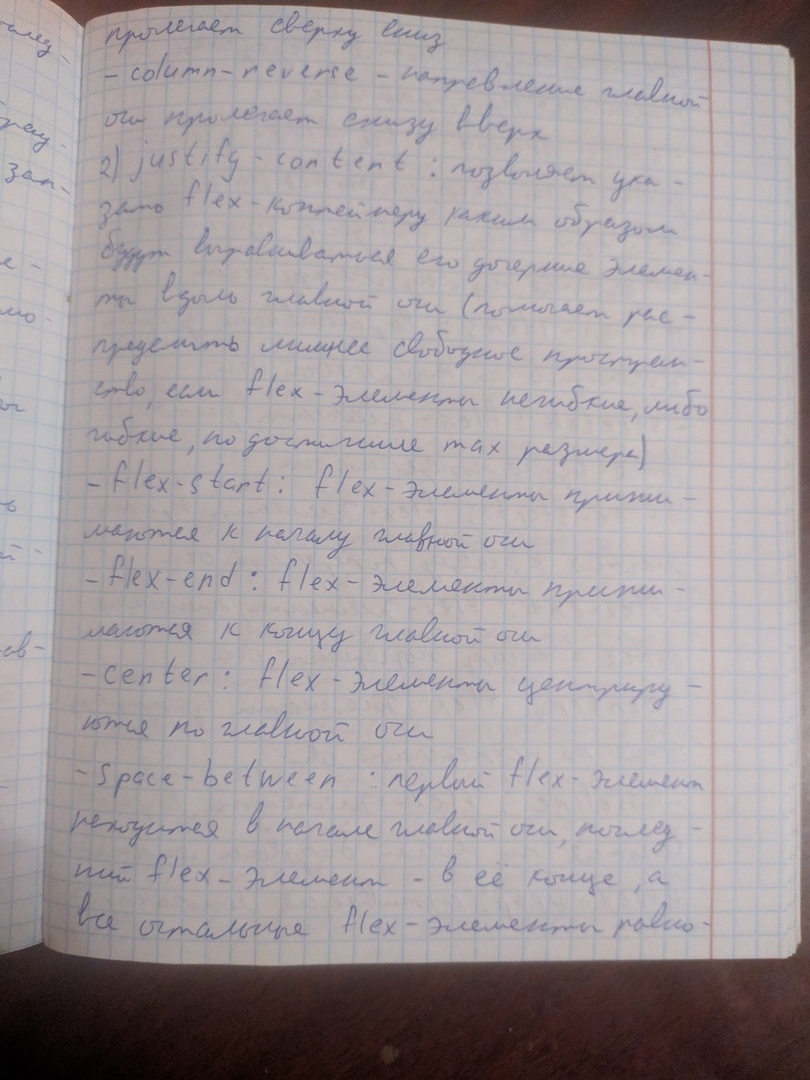 пролегает сверху вниз
- column-reverse - направление главной
оси пролегает снизу вверх
2) justify-content : позволяет ука-
зать flex-контейнеру каким образом
будут выравниваться его дочерние элемен-
ты вдоль главной оси (помогает рас-
пределить лишнее свободное простран-
ство, если flex-элементы негибкие, либо
гибкие, но достигшие max размера)
- flex-start : flex-элементы прижи-
маются к началу главной оси
- flex-end : flex-элементы прижи-
маются к концу главной оси
- center : flex-элементы центриру-
ются по главной оси
- space-between : первый flex-элемент
находится в начале главной оси, послед-
ний flex-элемент - в её конце, а
все остальные flex-элементы равно-